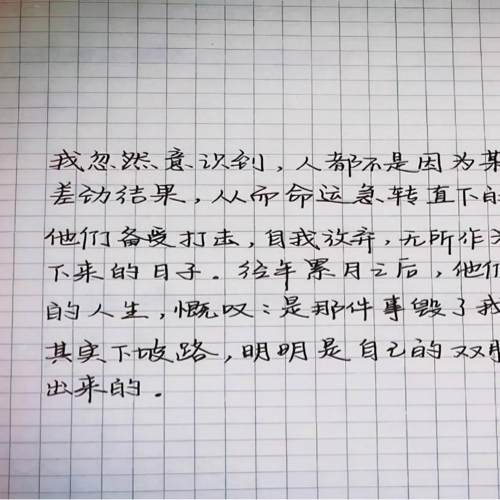 我忽然意识到，人都不是因为某
差动结果，从而命运急转直下的
他们备受打击，自我放弃，无所作为
下来的日子。经年累月之后，他们
的人生，慨叹：是那件事毁了我
其实下坡路，明明是自己的双脚
出来的.